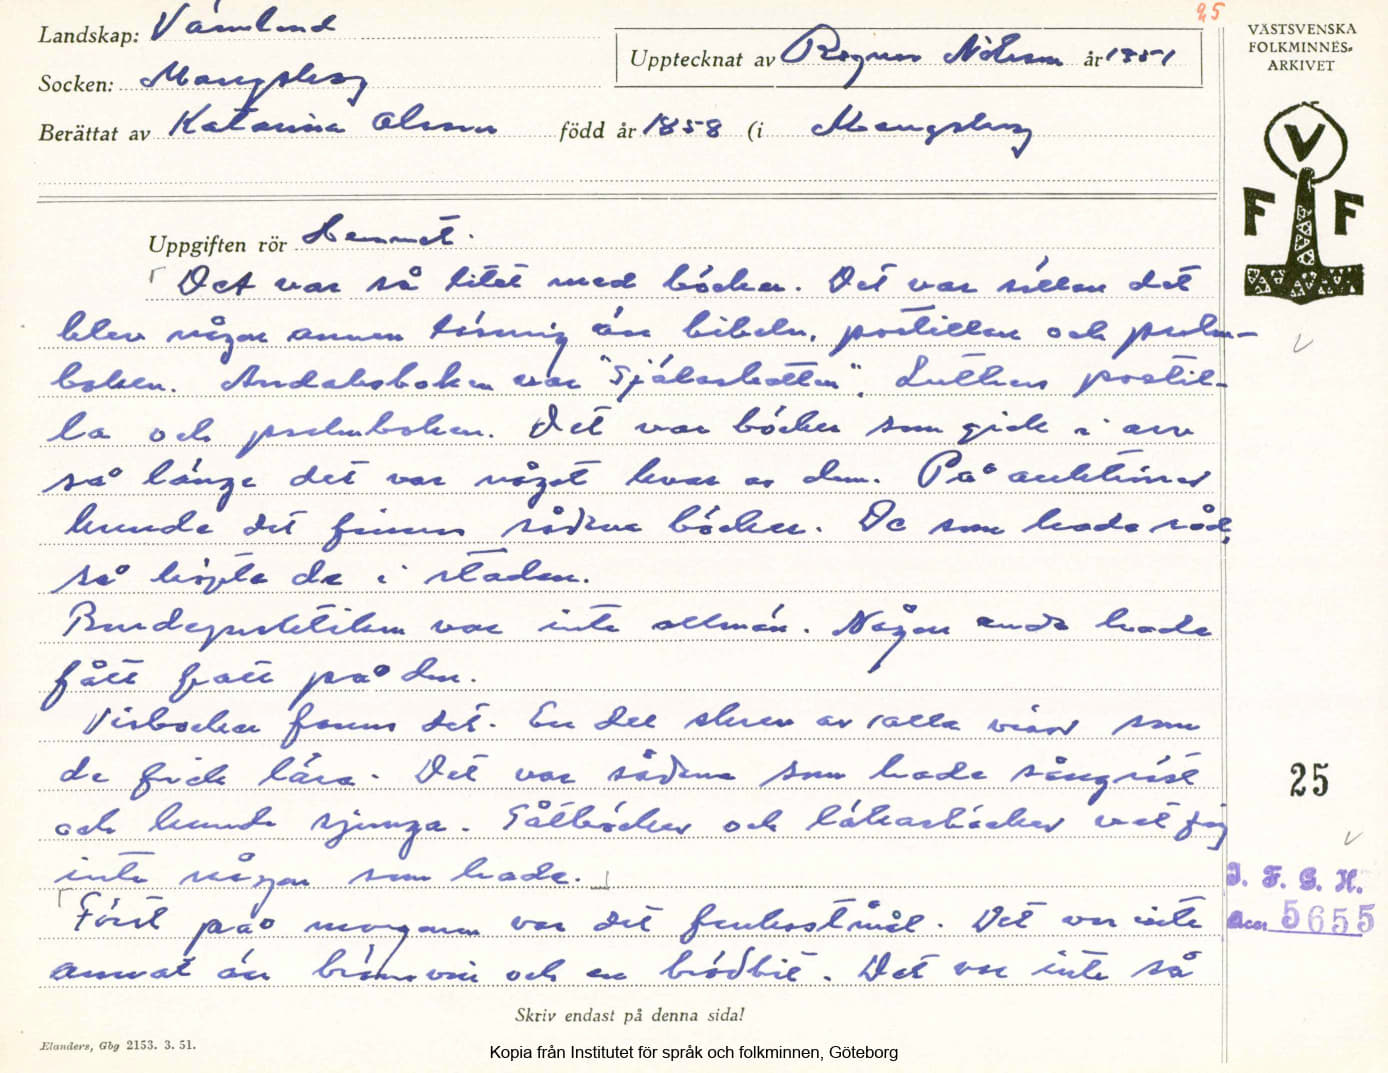 25
Landskap: Värmland
VÄSTSVENSKA
FOLKMINNES-
ARKIVET
Upptecknat av Ragnar Nilsson år 1951
Socken: Mangskog
Berättat av Katarina Olsson född år 1858 (i Mangskog
V
F F
Uppgiften rör Hemmet.
Det var så litet med böcker. Det var sällan det
blev någon annan läsning än bibeln, postillan och psalm-
boken. Andaksboken var "Själaskatten", Luthers postil-
la och psalmboken. Det var böcker som gick i arv
så länge det var något kvar av dem. På auktioner
kunde det finnas sådana böcker. De som hade råd,
så köpte de i staden.
Bondepraktikan var inte allmän. Någon enda hade
fått fatt på den.
Visböcker fanns det. En del skrev av alla visor som
de fick lära. Det var sådana som hade sångröst
och kunde sjunga. Gåtböcker och läkarböcker vet jag
inte någon som hade.
Först på morgonen var det frukostmål. Det var inte
annat än brännvin och en brödbit. Det var inte så
25
I. F. G. H.
acc 5655
Skriv endast på denna sida!
Elanders, Gbg 2153. 3. 51.
Kopia från Institutet för språk och folkminnen, Göteborg